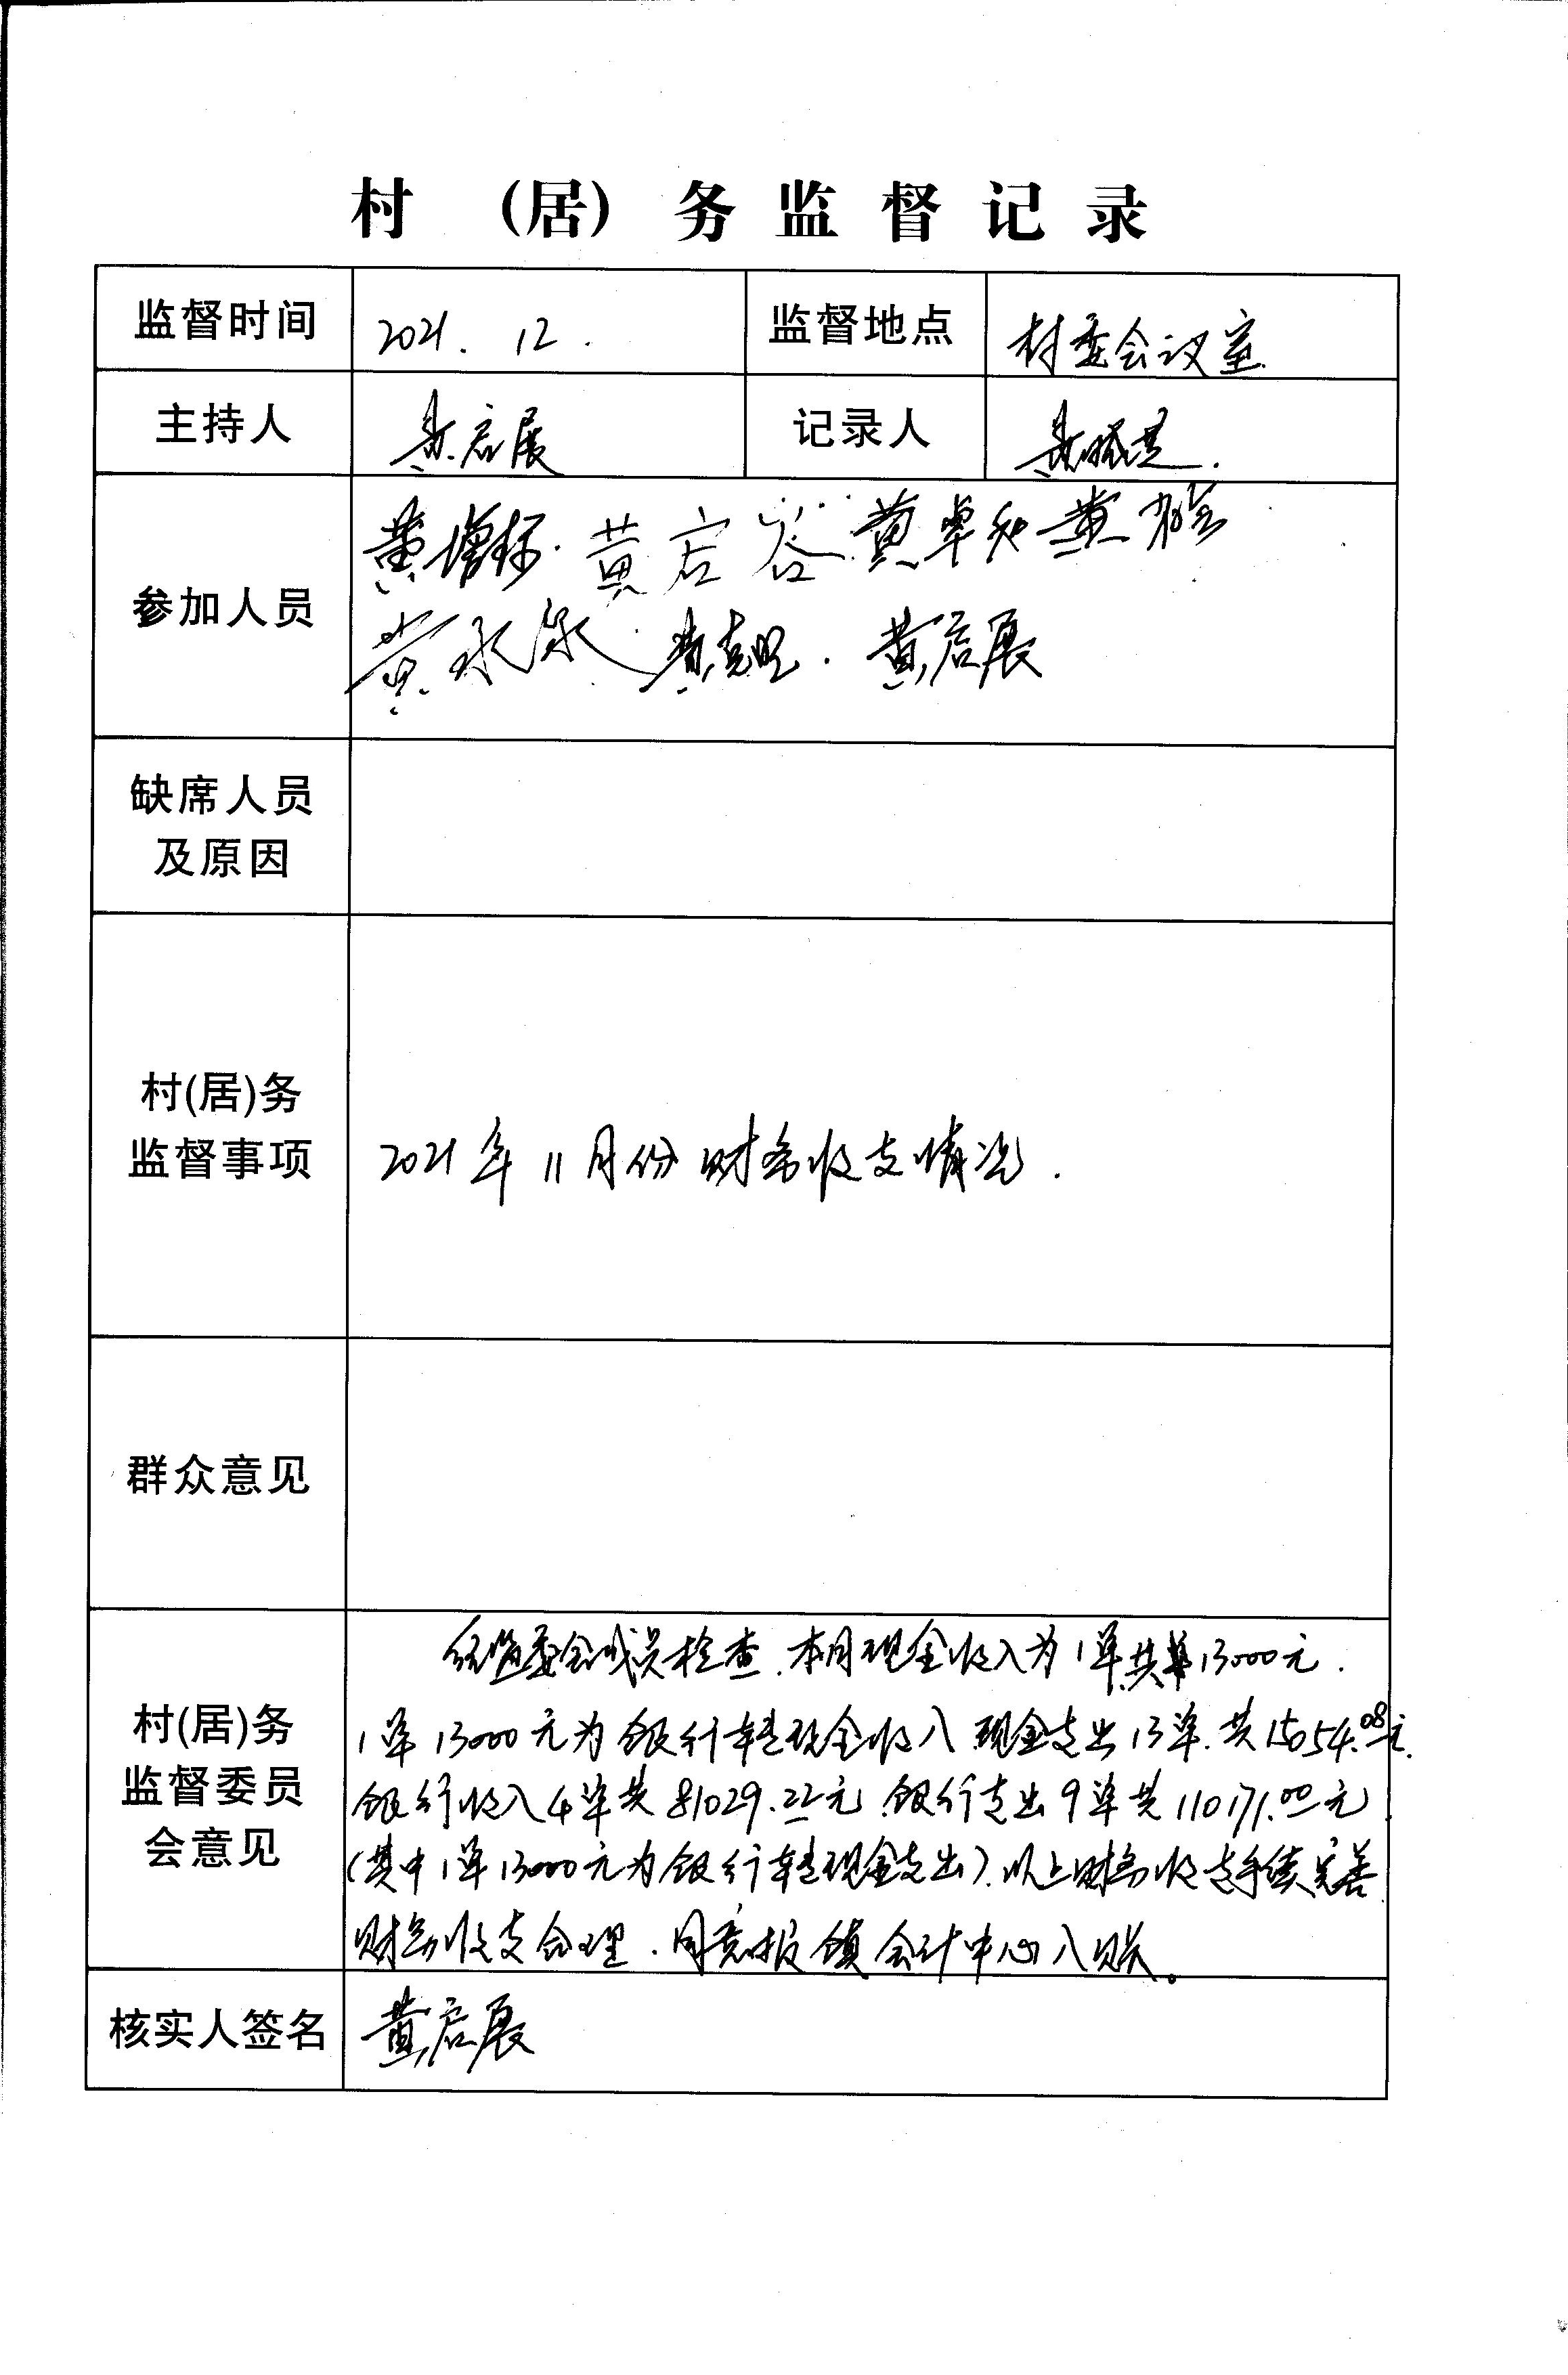 村 (居) 务监督记录
监督时间 2021. 12. 监督地点 村委会议室.
主持人 黄启展 记录人 黄
参加人员
黄增标. 黄启容 黄卓和 黄
黄永 黄 . 黄启展
缺席人员
及原因
村(居)务
监督事项
2021年11月份财务收支情况.
群众意见
村(居)务
监督委员
会意见
经监委会成员检查.本月现金收入为1单.共 13000元.
1单13000元为银行转现金收入.现金支出13单.共15054.08元.
银行收入4单共81029.22元.银行支出9单共110171.00元
(其中1单13000元为银行转现金支出).以上财务收支手续完善
财务收支合理.同意报镇会计中心入账。
核实人签名 黄启展